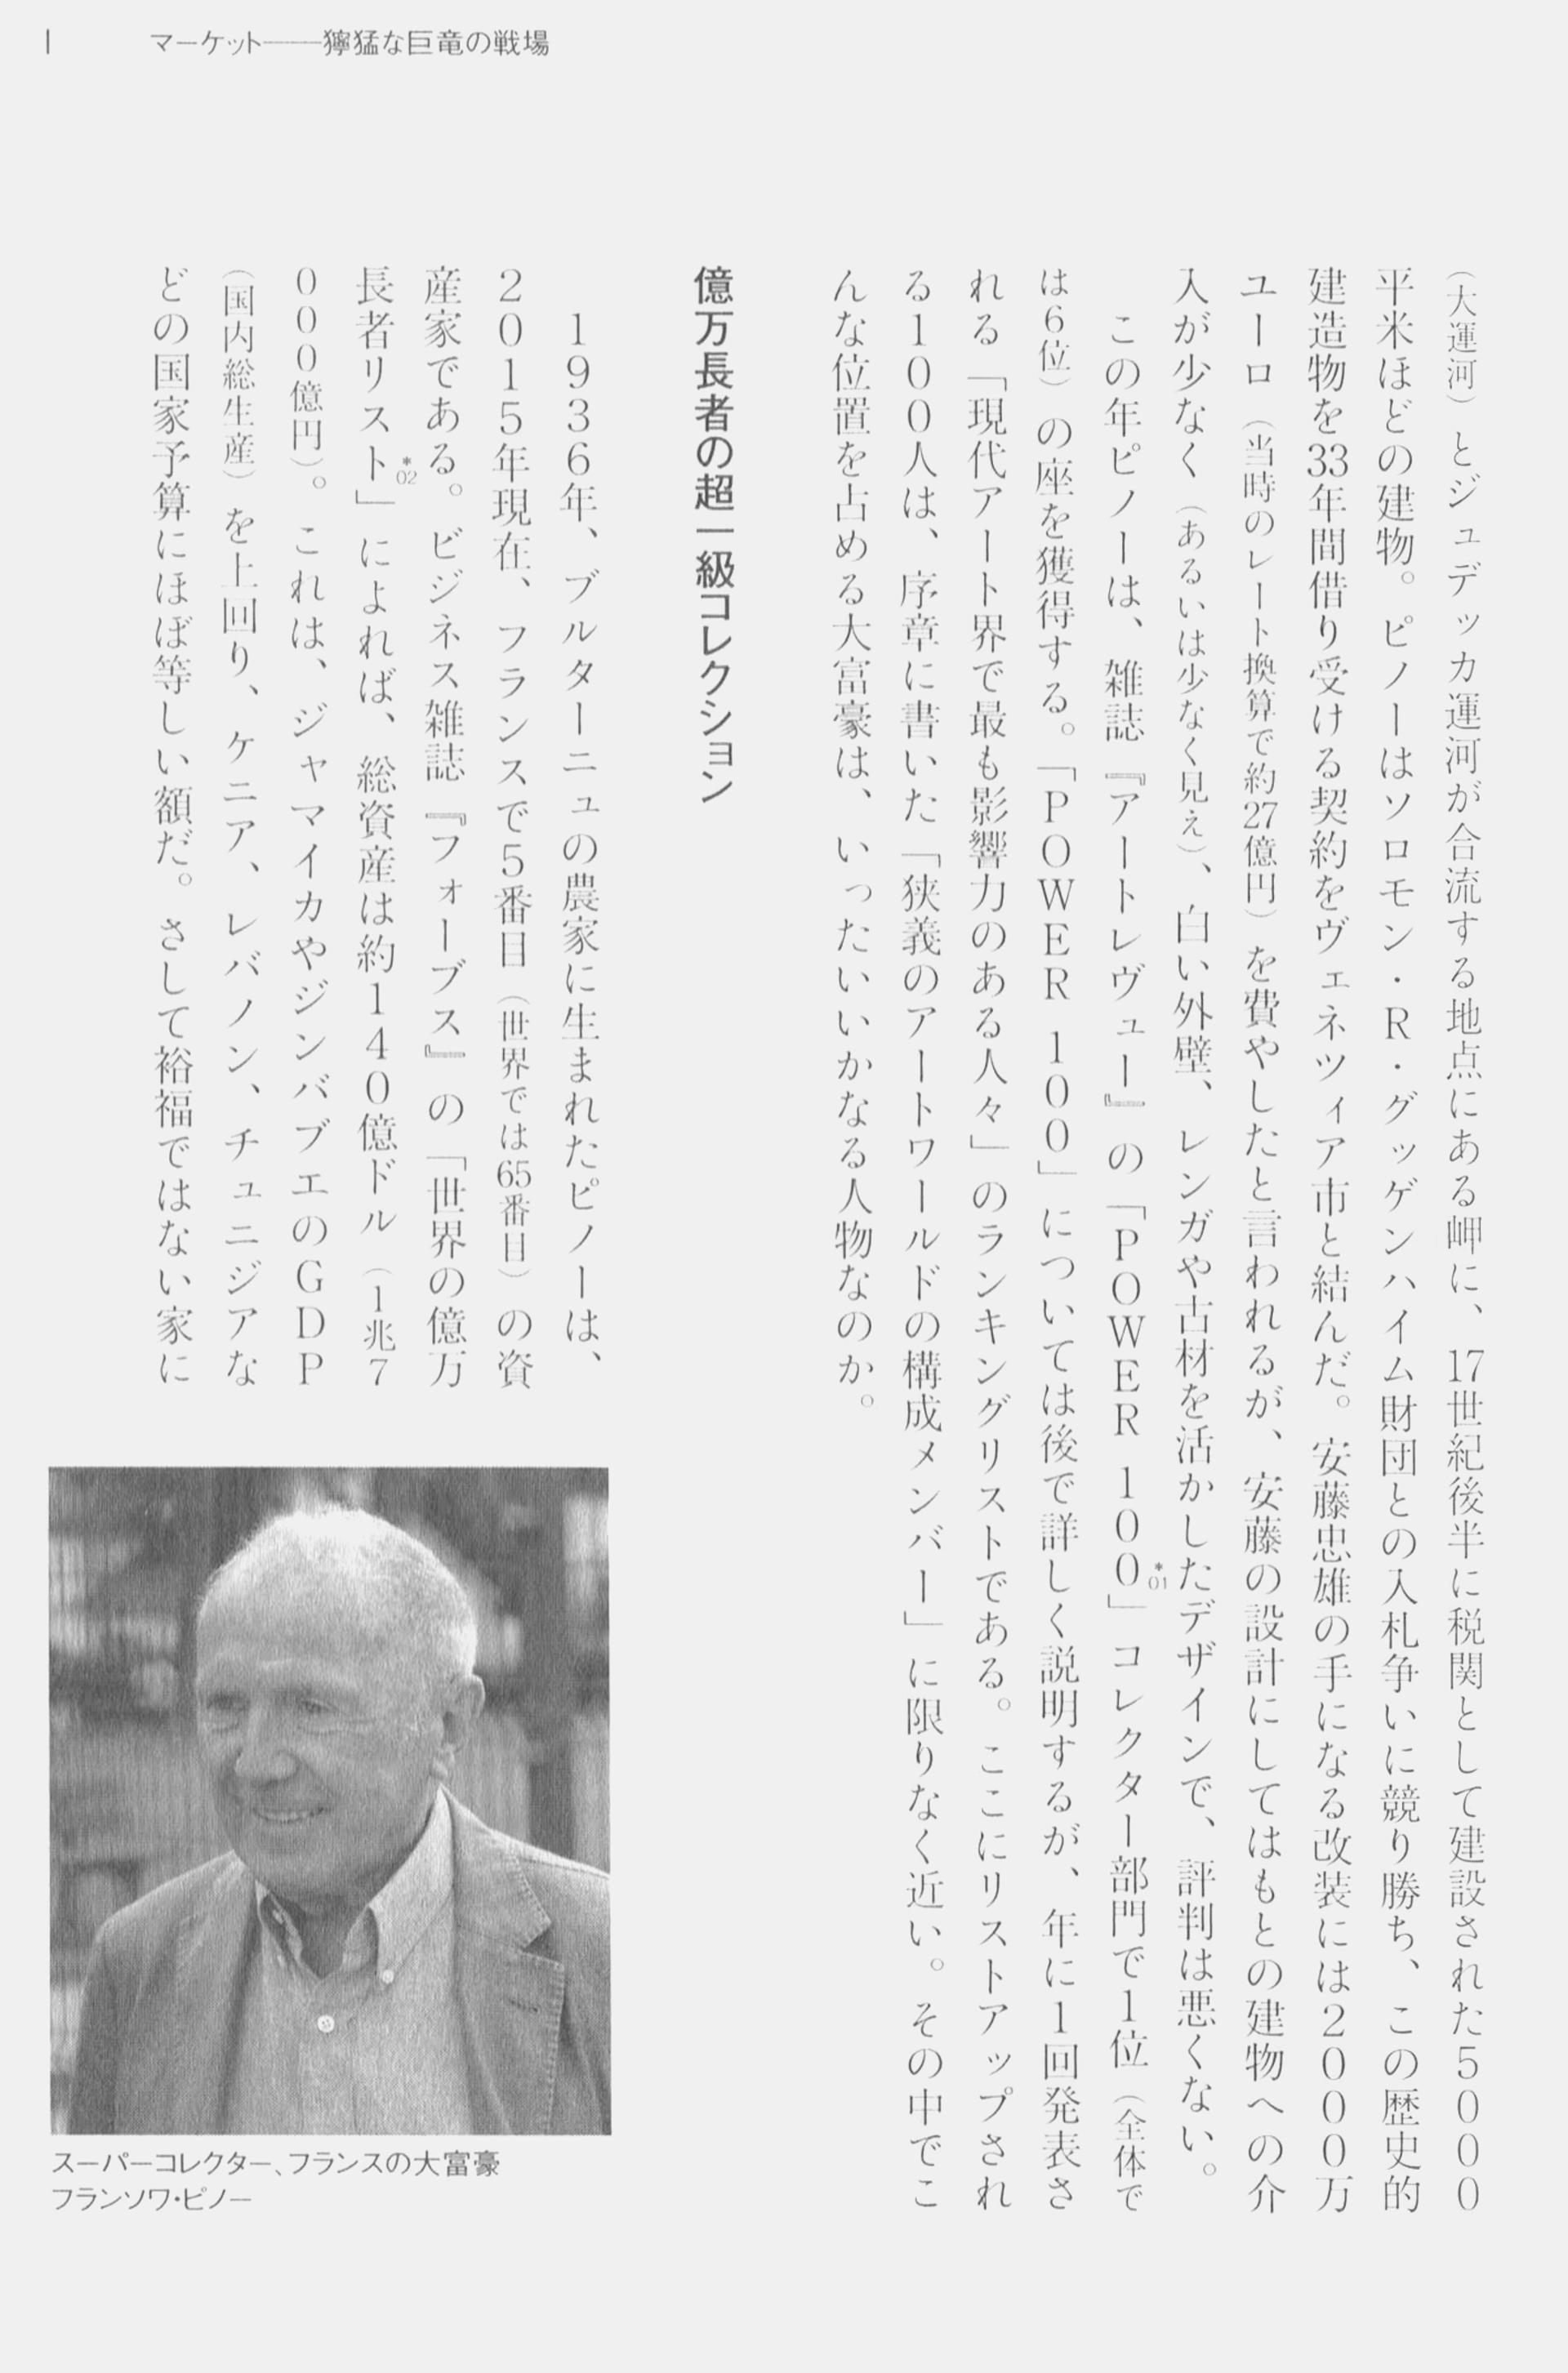 I マーケット──獰猛な巨竜の戦場
（大運河）とジュデッカ運河が合流する地点にある岬に、17世紀後半に税関として建設された5000
平米ほどの建物。ピノーはソロモン・R・グッゲンハイム財団との入札争いに競り勝ち、この歴史的
建造物を33年間借り受ける契約をヴェネツィア市と結んだ。安藤忠雄の手になる改装には2000万
ユーロ（当時のレート換算で約27億円）を費やしたと言われるが、安藤の設計にしてはもとの建物への介
入が少なく（あるいは少なく見え）、白い外壁、レンガや古材を活かしたデザインで、評判は悪くない。
この年ピノーは、雑誌『アートレヴュー』の「POWER 100」*01コレクター部門で1位（全体で
は6位）の座を獲得する。「POWER 100」については後で詳しく説明するが、年に1回発表さ
れる「現代アート界で最も影響力のある人々」のランキングリストである。ここにリストアップされ
る100人は、序章に書いた「狭義のアートワールドの構成メンバー」に限りなく近い。その中でこ
んな位置を占める大富豪は、いったいいかなる人物なのか。
億万長者の超一級コレクション
1936年、ブルターニュの農家に生まれたピノーは、
2015年現在、フランスで5番目（世界では65番目）の資
産家である。ビジネス雑誌『フォーブス』の「世界の億万
長者リスト*02」によれば、総資産は約140億ドル（1兆7
000億円）。これは、ジャマイカやジンバブエのGDP
（国内総生産）を上回り、ケニア、レバノン、チュニジアな
どの国家予算にほぼ等しい額だ。さして裕福ではない家に
スーパーコレクター、フランスの大富豪
フランソワ・ピノー